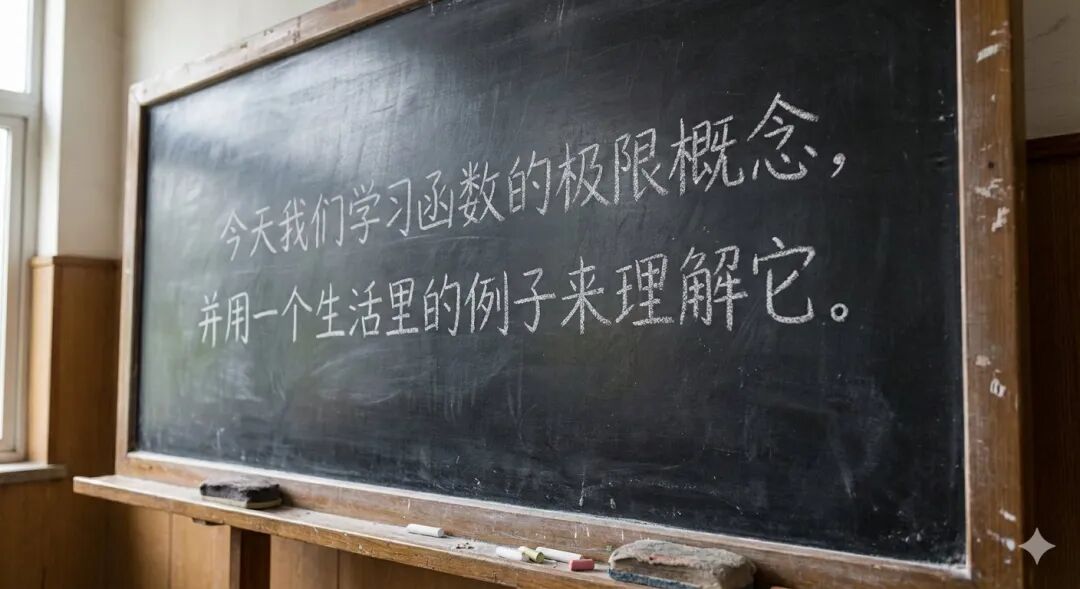 今天我们学习函数的极限概念，
并用一个生活里的例子来理解它。